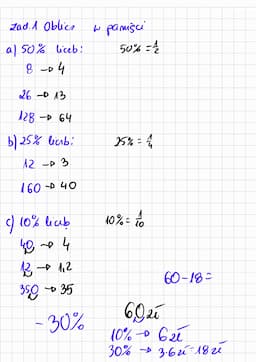 zad.1 Oblicz w pamięci
a) 50% liczb: 50% = 1/2
8 → 4
26 → 13
128 → 64
b) 25% liczb: 25% = 1/4
12 → 3
160 → 40
c) 10% liczb 10% = 1/10
40 → 4
12 → 1,2
350 → 35
60-18=
-30% 60 zł
10% → 6 zł
30% → 3·6 zł = 18 zł